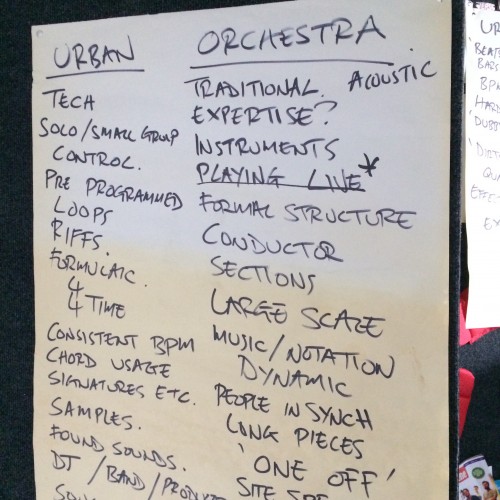 URBAN
TECH
SOLO/SMALL GROUP
CONTROL.
PRE PROGRAMMED
LOOPS
RIFFS.
FORMULAIC.
4
4 TIME
CONSISTENT BPM
CHORD USAGE
SIGNATURES ETC.
SAMPLES.
FOUND SOUNDS.
DJ / BAND / PRODUCE
ORCHESTRA.
TRADITIONAL. ACOUSTIC
EXPERTISE?
INSTRUMENTS
PLAYING LIVE*
FORMAL STRUCTURE
CONDUCTOR
SECTIONS
LARGE SCALE
MUSIC/NOTATION
DYNAMIC
PEOPLE IN SYNCH
LONG PIECES
'ONE OFF'
SITE
UR
BARS
BPM
HARD
'DUBST
QU
EFFE
EX